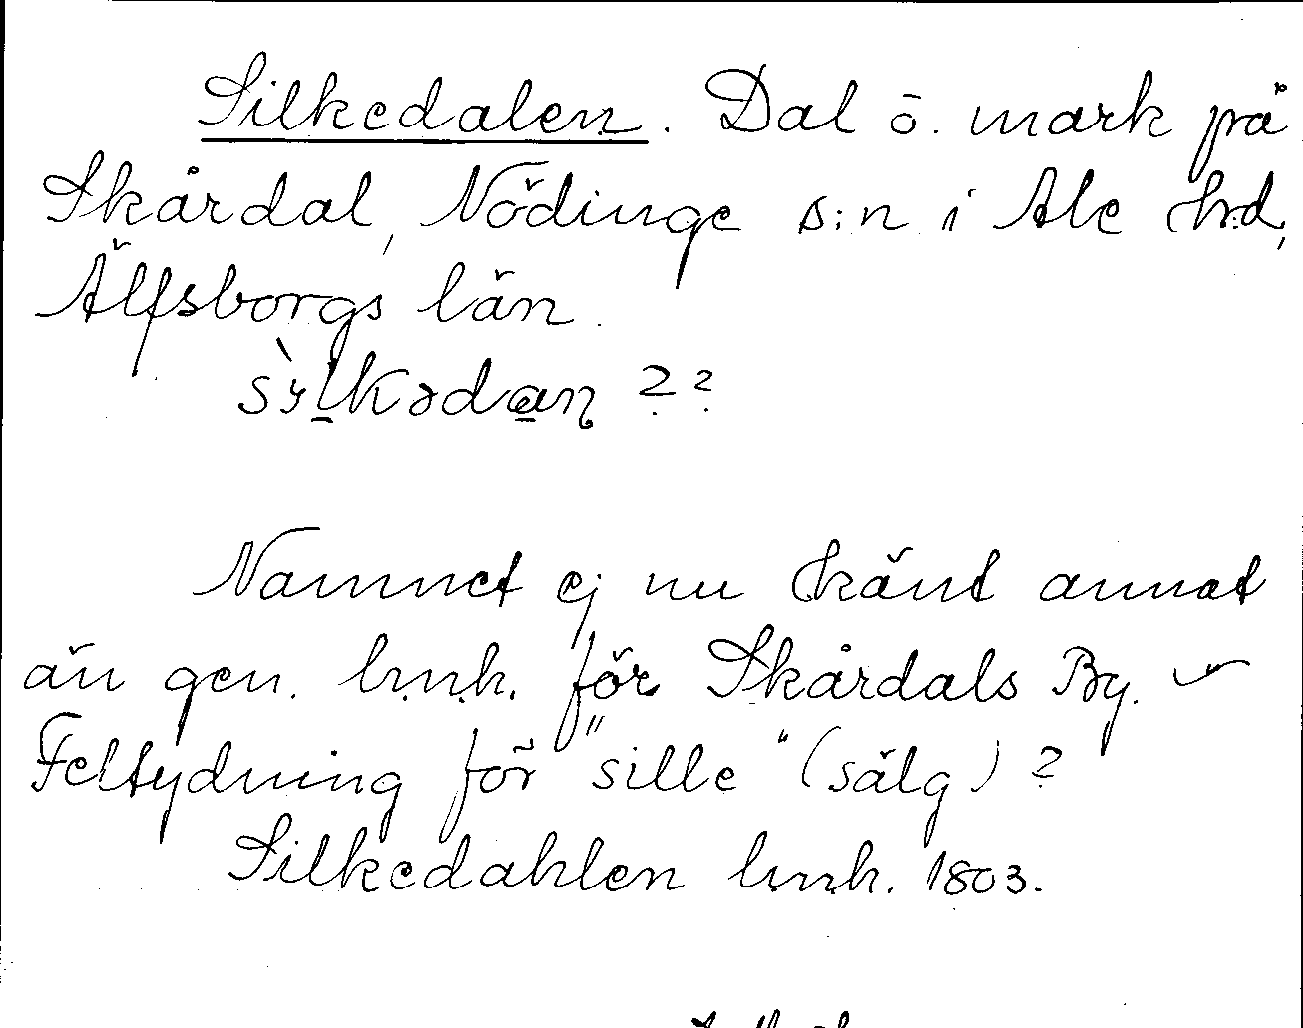 Silkedalen. Dal o. mark på
Skårdal, Nödinge s:n i Ale h:d,
Älfsborgs län.
Namnet ej nu känt annat
än gen. lmh. för Skårdals By.
Feltydning för "sille" (sälg)?
Silkedahlen lmh. 1803.